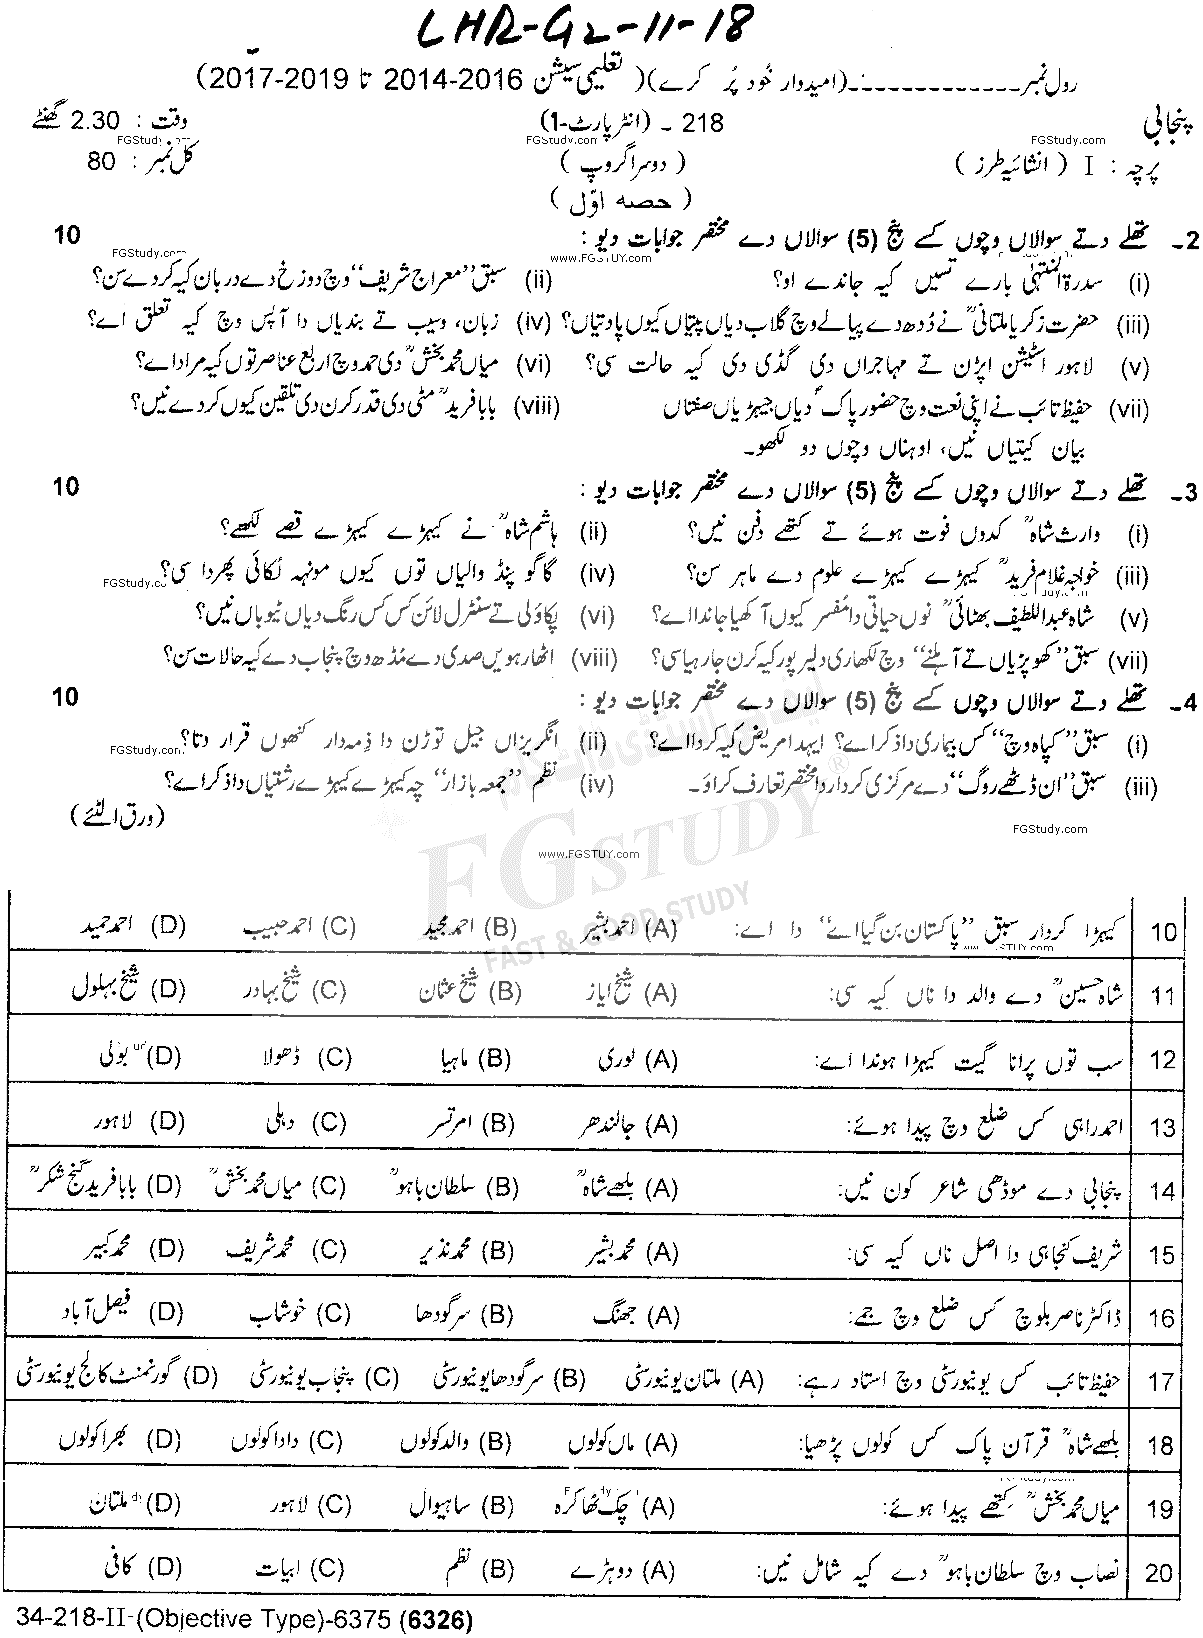 LHR-G2-11-18
رول نمبر ـــــــــــــ (امیدوار خُود پُر کرے) (تعلیمی سیشن 2016-2014 تا 2019-2017)
پنجابی 218 ۔ (انٹرپارٹ-1) وقت : 2.30 گھنٹے
FGStudy.com FGStudy.com FGStudy.com
پرچہ : I (انشائیہ طرز) (دوسرا گروپ) کل نمبر : 80
(حصہ اوّل)
2۔ تھلے دتے سوالاں وچوں کسے پنج (5) سوالاں دے مختصر جوابات دیو : 10
FGStudy.com www.FGSTUY.com
(i) سدرۃ المنتہیٰ بارے تسیں کیہ جاندے او؟ (ii) سبق ”معراج شریف“ وچ دوزخ دے دربان کیہ کردے سن؟
(iii) حضرت زکریا ملتانیؒ نے دُودھ دے پیالے وچ گلاب دیاں پتیاں کیوں پا دتیاں؟ (iv) زبان، وسیب تے بندیاں دا آپس وچ کیہ تعلق اے؟
(v) لاہور اسٹیشن اپڑن تے مہاجراں دی گڈی دی کیہ حالت سی؟ (vi) میاں محمد بخشؒ دی حمد وچ اربع عناصر توں کیہ مراد اے؟
(vii) حفیظ تائب نے اپنی نعت وچ حضور پاکؐ دیاں جیہڑیاں صفتاں (viii) بابا فریدؒ مٹی دی قدر کرن دی تلقین کیوں کردے نیں؟
بیان کیتیاں نیں، اوہناں وچوں دو لکھو۔
3۔ تھلے دتے سوالاں وچوں کسے پنج (5) سوالاں دے مختصر جوابات دیو : 10
(i) وارث شاہؒ کدوں فوت ہوئے تے کتھے دفن نیں؟ (ii) ہاشم شاہؒ نے کیہڑے کیہڑے قصے لکھے؟
(iii) خواجہ غلام فریدؒ کیہڑے کیہڑے علوم دے ماہر سن؟ (iv) گاگو پنڈ والیاں توں کیوں مونہہ لُکائی پھردا سی؟
FGStudy.com
(v) شاہ عبداللطیف بھٹائیؒ نوں حیاتی دا مُفسر کیوں آکھیا جاندا اے؟ (vi) پکاڈلی تے سنٹرل لائن کس کس رنگ دیاں ٹیوباں نیں؟
(vii) سبق ”کھوپڑیاں تے آہلنے“ وچ لکھاری دلیر پور کیہ کرن جا رہیا سی؟ (viii) اٹھارھویں صدی دے مُڈھ وچ پنجاب دے کیہ حالات سن؟
4۔ تھلے دتے سوالاں وچوں کسے پنج (5) سوالاں دے مختصر جوابات دیو : 10
(i) سبق ”کپاہ وچ“ کس بیماری دا ذکر اے؟ ایہدا مریض کیہ کردا اے؟ (ii) انگریزاں جیل توڑن دا ذمہ دار کنھوں قرار دتا؟
FGStudy.com
(iii) سبق ”ان ڈٹھے روگ“ دے مرکزی کردار دا مختصر تعارف کراؤ۔ (iv) نظم ”جمعہ بازار“ چہ کیہڑے کیہڑے رشتیاں دا ذکر اے؟
(ورق الٹئے)
FGStudy.com
www.FGSTUY.com
FGSTUDY
FAST & GOOD STUDY
10 کیہڑا کردار سبق ”پاکستان بن گیا اے“ دا اے: (A) احمد بشیر (B) احمد مجید (C) احمد حبیب (D) احمد حمید
11 شاہ حسینؒ دے والد دا ناں کیہ سی: (A) شیخ ایاز (B) شیخ عثمان (C) شیخ بہادر (D) شیخ بہلول
12 سب توں پرانا گیت کیہڑا ہوندا اے: (A) لوری (B) ماہیا (C) ڈھولا (D) بولی
13 احمد راہی کس ضلع وچ پیدا ہوئے: (A) جالندھر (B) امرتسر (C) دہلی (D) لاہور
14 پنجابی دے موڈھی شاعر کون نیں: (A) بلھے شاہؒ (B) سلطان باہوؒ (C) میاں محمد بخشؒ (D) بابا فرید گنج شکرؒ
15 شریف کنجاہی دا اصل ناں کیہ سی: (A) محمد بشیر (B) محمد نذیر (C) محمد شریف (D) محمد کبیر
16 ڈاکٹر ناصر بلوچ کس ضلع وچ جمے: (A) جھنگ (B) سرگودھا (C) خوشاب (D) فیصل آباد
17 حفیظ تائب کس یونیورسٹی وچ استاد رہے: (A) ملتان یونیورسٹی (B) سرگودھا یونیورسٹی (C) پنجاب یونیورسٹی (D) گورنمنٹ کالج یونیورسٹی
18 بلھے شاہؒ قرآن پاک کس کولوں پڑھیا: (A) ماں کولوں (B) والد کولوں (C) دادا کولوں (D) بھرا کولوں
19 میاں محمد بخشؒ کتھے پیدا ہوئے: (A) چک ٹھاکرہ (B) ساہیوال (C) لاہور (D) ملتان
20 نصاب وچ سلطان باہوؒ دے کیہ شامل نیں: (A) دوہڑے (B) نظم (C) ابیات (D) کافی
34-218-II-(Objective Type)-6375 (6326)